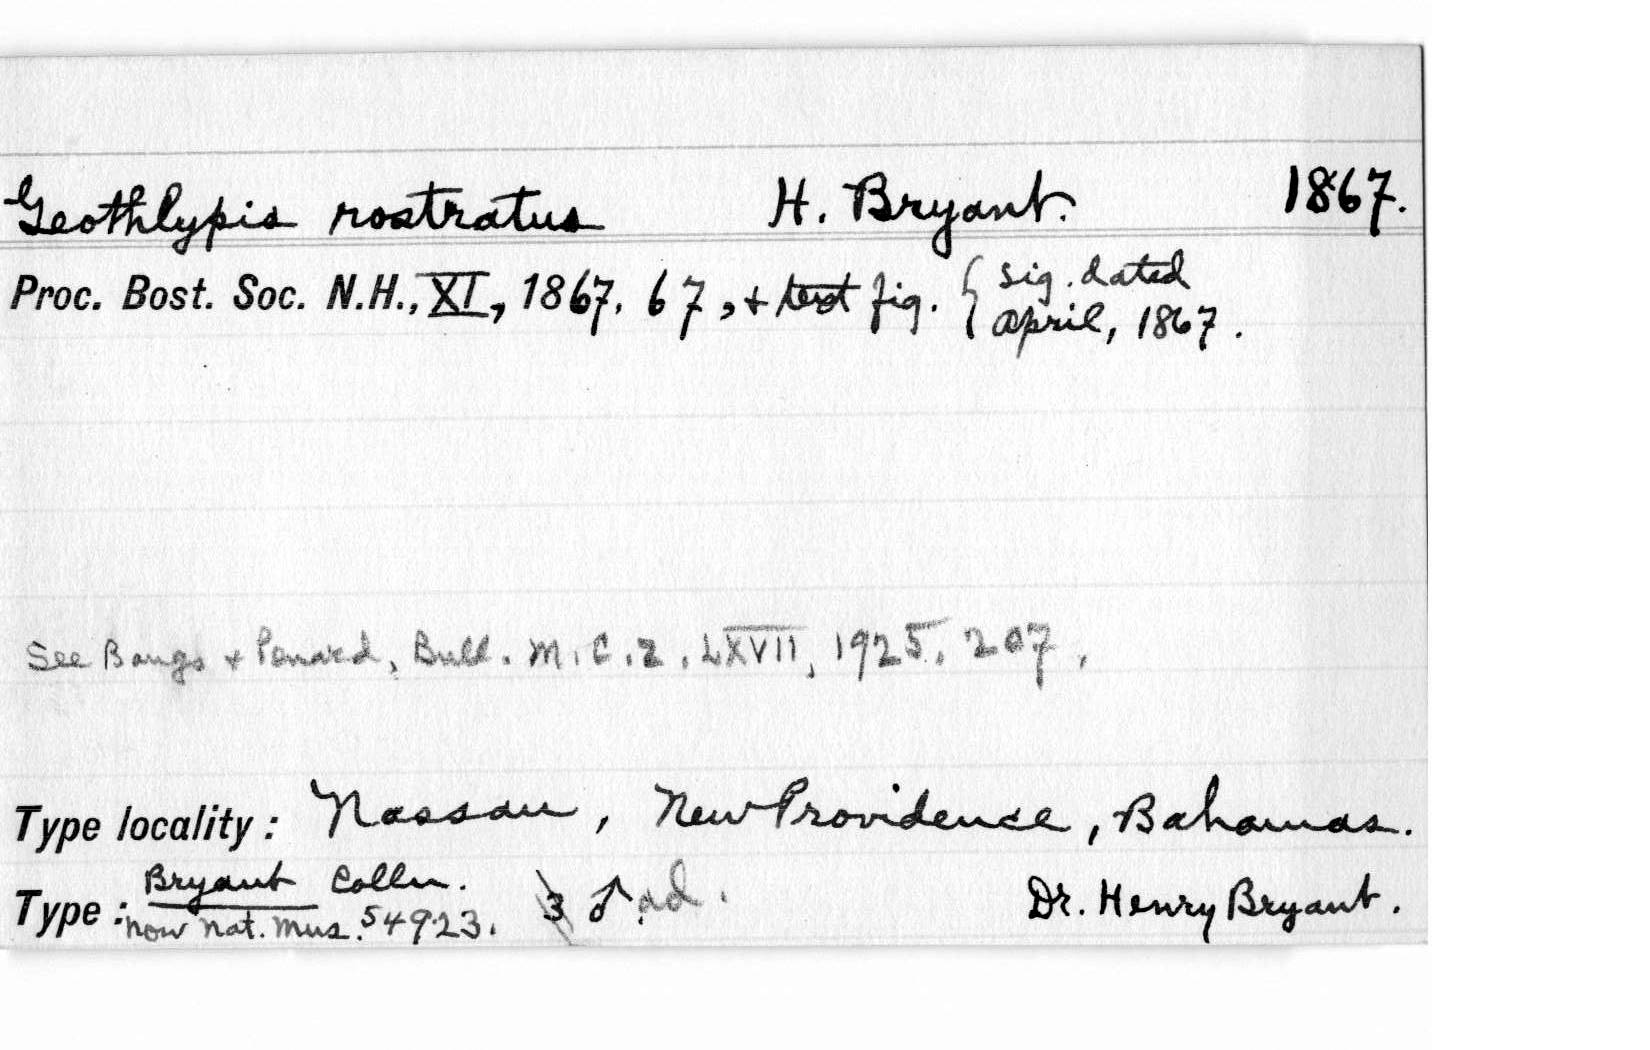 Geothlypis rostratus H. Bryant. 1867.
Proc. Bost. Soc. N.H., XI, 1867. 67, + text fig. { sig. dated
April, 1867.
See Bangs + Penard, Bull. M.C.Z. LXVII, 1925, 207.
Type locality: Nassau, New Providence, Bahamas.
Bryant Colln.
Type: now Nat. Mus. 54923. 3 ♂ ad. Dr. Henry Bryant.